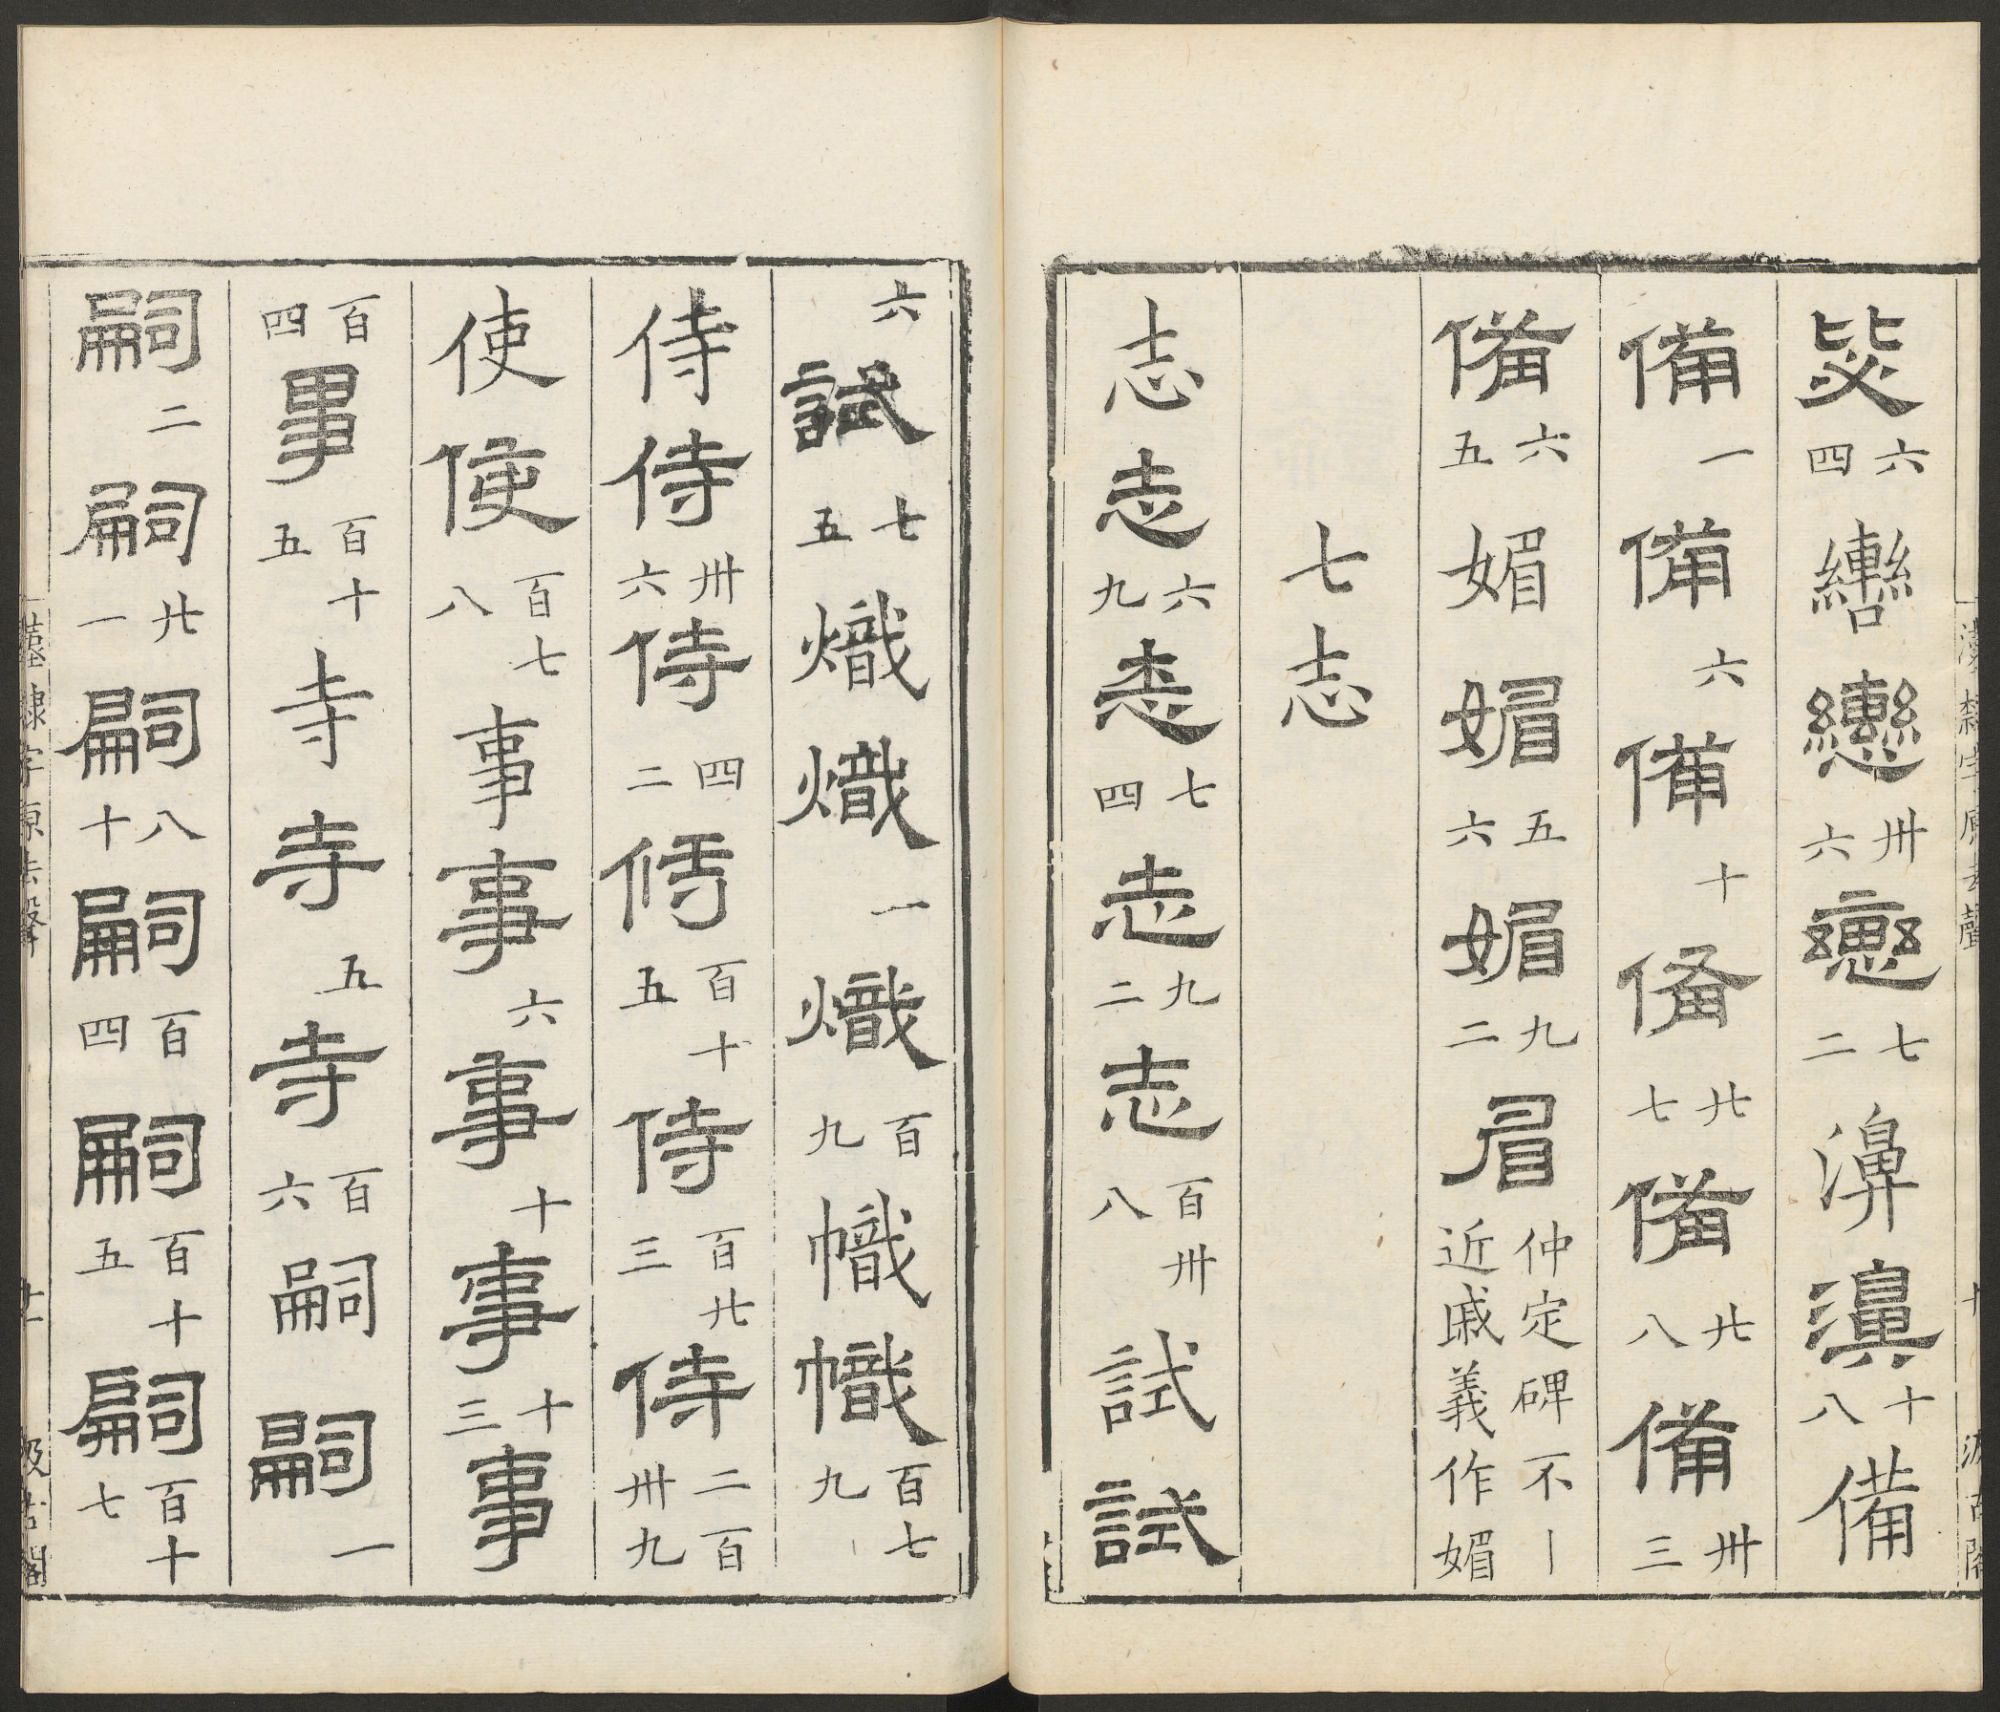 毖六四轡轡卅六轡七二濞濞十八備
備一備六備十備廿七備廿八備卅三
備六五媚媚五六媚九二眉仲定碑不｜近戚義作媚
七志
志志六九志七四志九二志百卅八試試
六試七五熾熾一熾百九幟幟百七九
侍侍卅六侍四二侍百十五侍百廿三侍二百卅九
使使百七八事事六事十事十三事
百四事百十五寺寺五寺百六嗣嗣一
嗣二嗣廿一嗣八十嗣百四嗣百十五嗣百十七
漢隸字源去聲
汲古閣